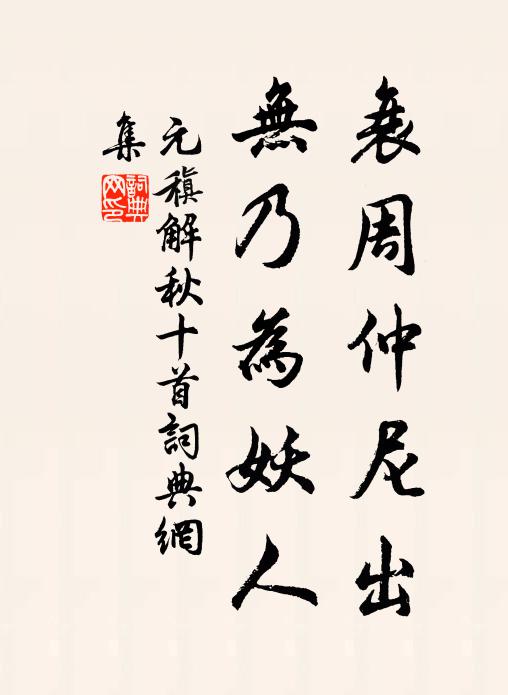 衰周仲尼出
無乃為妖人
元稹解秋十首詞典網
集
詞典
网印